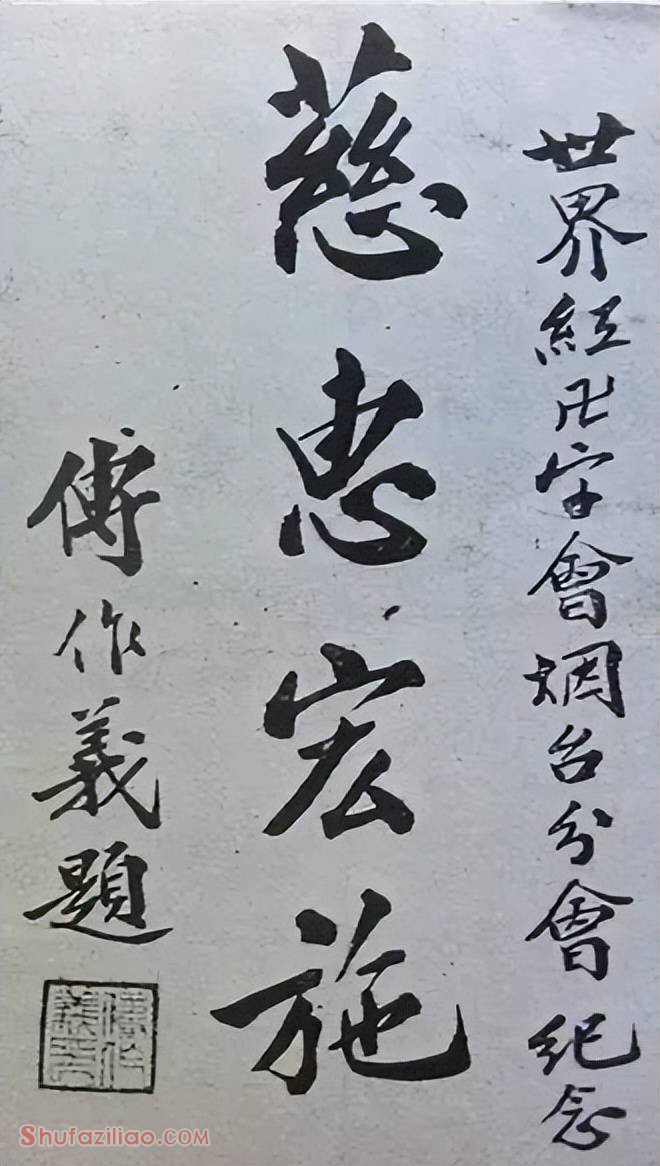 世界紅卍字會烟台分會紀念
慈惠宏施
傅作義題
傅作義印
Shufaziliao.com